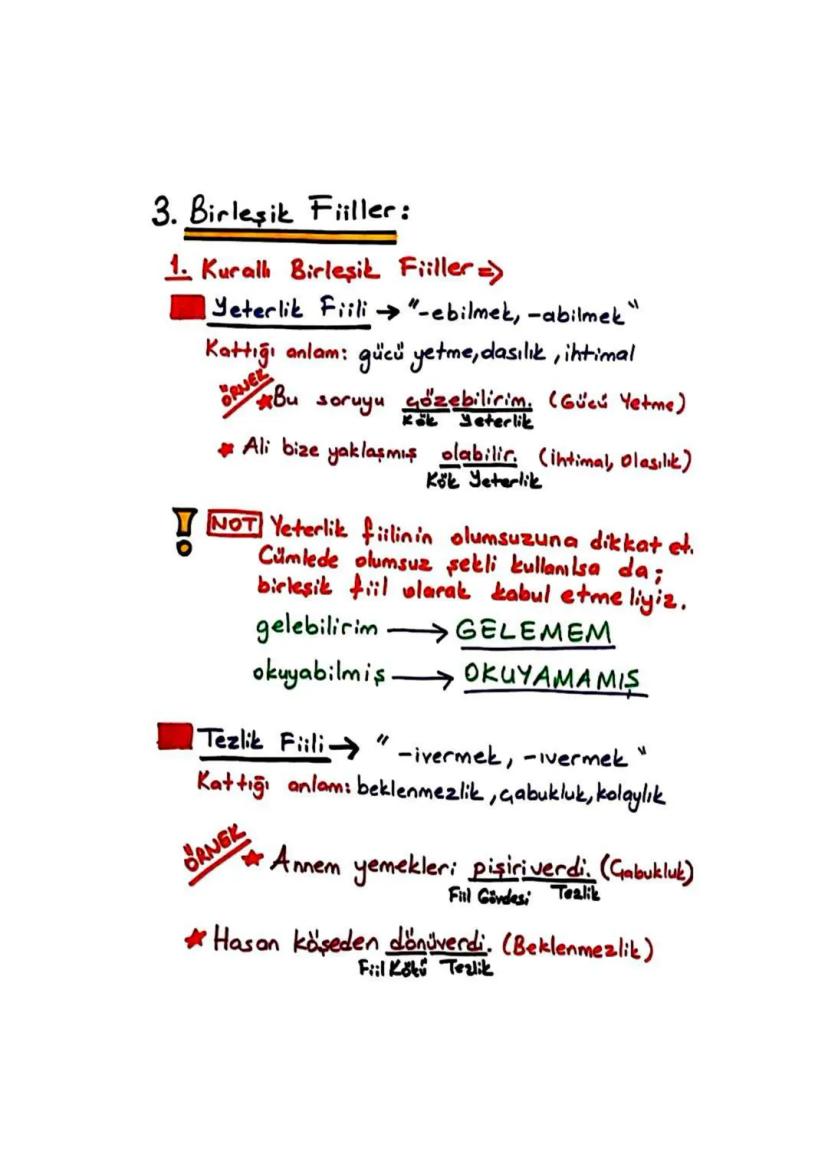 3. Birleşik Fiiller:
1. Kurallı Birleşik Fiiller =>
Yeterlik Fiili → "-ebilmek, -abilmek"
Kattığı anlam: gücü yetme, olasılık, ihtimal
ÖRNEK
★ Bu soruyu çözebilirim. (Gücü Yetme)
Kök Yeterlik
★ Ali bize yaklaşmış olabilir. (İhtimal, Olasılık)
Kök Yeterlik
! NOT Yeterlik fiilinin olumsuzuna dikkat et.
Cümlede olumsuz şekli kullanılsa da;
birleşik fiil olarak kabul etmeliyiz.
gelebilirim → GELEMEM
okuyabilmiş → OKUYAMAMIŞ
Tezlik Fiili → "-ivermek, -ıvermek"
Kattığı anlam: beklenmezlik, çabukluk, kolaylık
ÖRNEK
★ Annem yemekleri pişiriverdi. (Çabukluk)
Fiil Gövdesi Tezlik
★ Hasan köşeden dönüverdi. (Beklenmezlik)
Fiil Kökü Tezlik